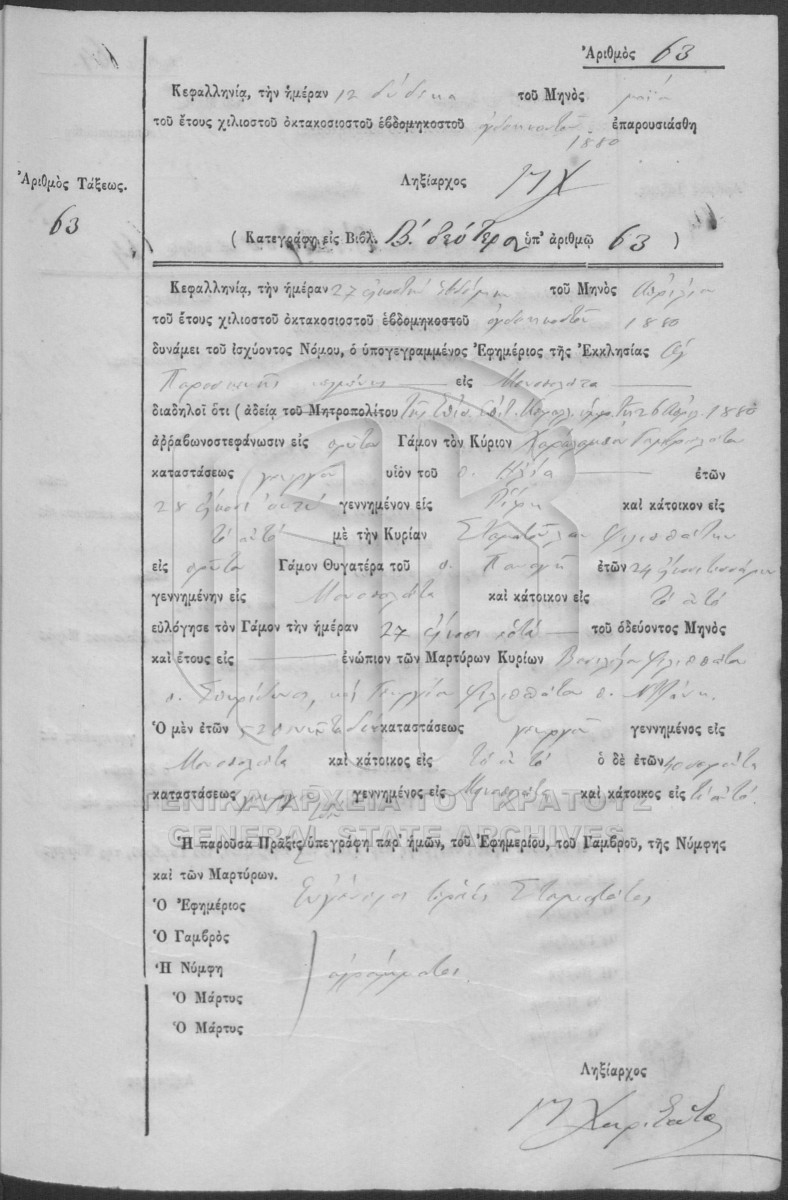 Ἀριθμὸς 63
Κεφαλληνίᾳ, τὴν ἡμέραν 12 δώδεκα τοῦ Μηνὸς μαΐου
τοῦ ἔτους χιλιοστοῦ ὀκτακοσιοστοῦ ἑβδομηκοστοῦ ὀγδοηκοστοῦ ἐπαρουσιάσθη
1880
Ἀριθμὸς Τάξεως.
63
Ληξίαρχος
( Κατεγράφη εἰς Βιβλ. Β΄. δεύτερον ὑπ' ἀριθμῷ 63 )
Κεφαλληνίᾳ, τὴν ἡμέραν 27 εἰκοστὴν ἑβδόμην τοῦ Μηνὸς Ἀπριλίου
τοῦ ἔτους χιλιοστοῦ ὀκτακοσιοστοῦ ἑβδομηκοστοῦ ὀγδοηκοστοῦ 1880
δυνάμει τοῦ ἰσχύοντος Νόμου, ὁ ὑπογεγραμμένος Ἐφημέριος τῆς Ἐκκλησίας Ἁγ
Παρασκευῆς εἰς Μονοπολάτα
διαδηλοῖ ὅτι ( ἀδείᾳ τοῦ Μητροπολίτου τῆς 26 Ἀπριλ. 1880
ἀῤῥαβωνοστεφάνωσιν εἰς πρῶτον Γάμον τὸν Κύριον Χαράλαμπον
καταστάσεως γεωργοῦ υἱὸν τοῦ π. Ἠλία ἐτῶν
28 εἴκοσι ὀκτώ γεννημένον εἰς Ῥίφι καὶ κάτοικον εἰς
τὸ αὐτό μὲ τὴν Κυρίαν Σταματούλαν Φιλιππάτου
εἰς πρῶτον Γάμον Θυγατέρα τοῦ π. Παναγῆ ἐτῶν 24 εἴκοσι τεσσάρων
γεννημένην εἰς Μονοπολάτα καὶ κάτοικον εἰς τὸ αὐτό
εὐλόγησε τὸν Γάμον τὴν ἡμέραν 27 εἴκοσι ἑπτά τοῦ ὁδεύοντος Μηνὸς
καὶ ἔτους εἰς ἐνώπιον τῶν Μαρτύρων Κυρίων Βασίλειον Φιλιππάτον
π. Σπυρίδωνος, καὶ Γεώργιον Φιλιππάτον π.
Ὁ μὲν ἐτῶν καταστάσεως γεωργοῦ γεννημένος εἰς
Μονοπολάτα καὶ κάτοικος εἰς τὸ αὐτό ὁ δὲ ἐτῶν 40 σαράντα
καταστάσεως γεωργοῦ γεννημένος εἰς Μονοπολάτα καὶ κάτοικος εἰς τὸ αὐτό.
ΓΕΝΙΚΑ ΑΡΧΕΙΑ ΤΟΥ ΚΡΑΤΟΥΣ
GENERAL STATE ARCHIVES
Ἡ παροῦσα Πρᾶξις ὑπεγράφη παρ' ἡμῶν, τοῦ Ἐφημερίου, τοῦ Γαμβροῦ, τῆς Νύμφης
καὶ τῶν Μαρτύρων.
Ὁ Ἐφημέριος ἱερεὺς
Ὁ Γαμβρὸς
Ἡ Νύμφη ἀγράμματοι.
Ὁ Μάρτυς
Ὁ Μάρτυς
Ληξίαρχος